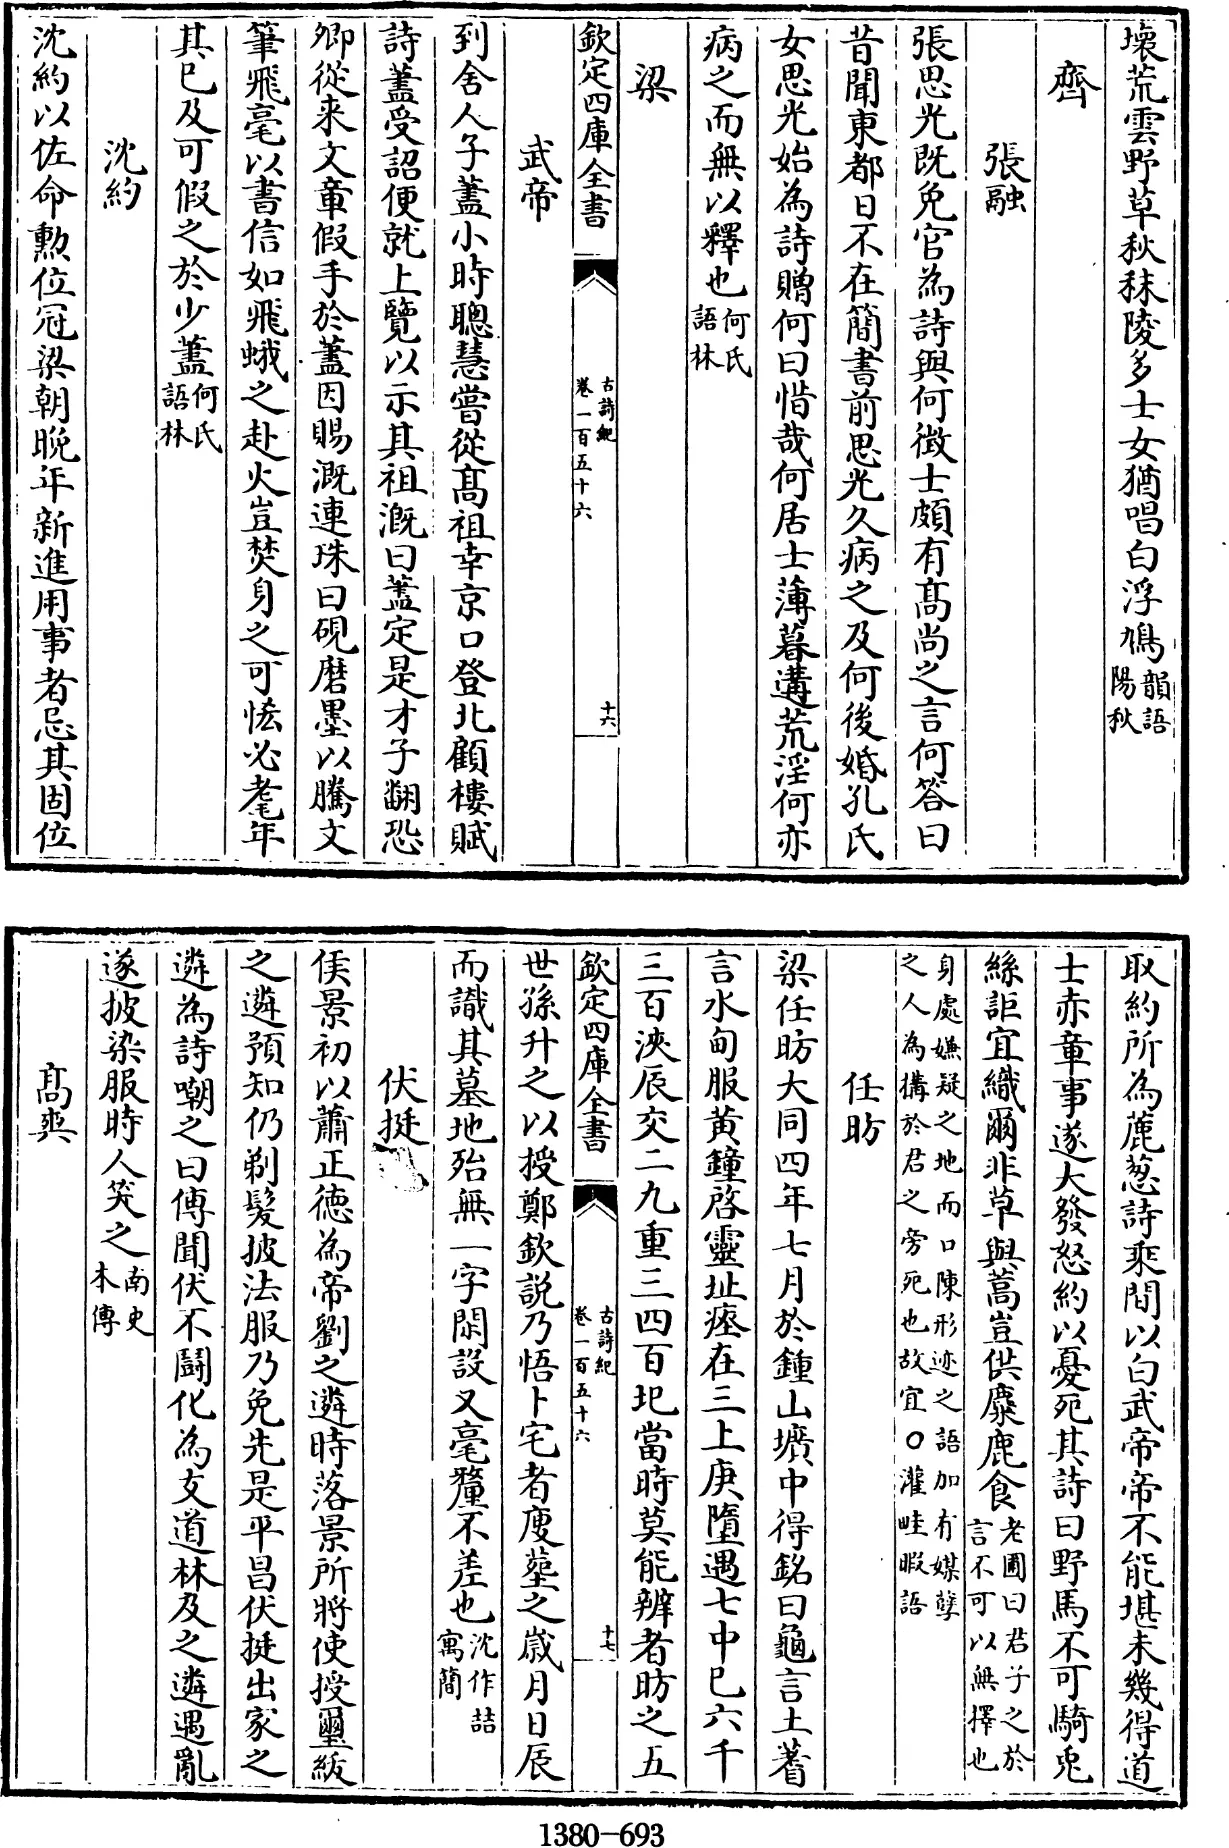 壊荒雲野草秋秣陵多士女猶唱白浮鳩韻語陽秋
齊
張融
張思光既免官為詩與何徴士頗有髙尚之言何答曰
昔聞東都日不在簡書前思光久病之及何後婚孔氏
女思光始為詩贈何曰惜哉何居士薄暮遘荒淫何亦
病之而無以釋也何氏語林
梁
欽定四庫全書
古詩紀
卷一百五十六
十六
武帝
到舍人子藎小時聰慧嘗從髙祖幸京口登北顧樓賦
詩藎受詔便就上覽以示其祖溉曰藎定是才子翻恐
卿從来文章假手於藎因賜溉連珠曰硯磨墨以騰文
筆飛毫以書信如飛蛾之赴火豈焚身之可恡必耄年
其已及可假之於少藎何氏語林
沈約
沈約以佐命勲位冠梁朝晚年新進用事者忌其固位
取約所為麤葱詩乘間以白武帝帝不能堪未幾得道
士赤章事遂大發怒約以憂死其詩曰野馬不可騎兎
絲詎宜織爾非草與蒿豈供麋鹿食老圃曰君子之於言不可以無擇也
身處嫌疑之地而口陳形迹之語加有媒孽
之人為搆於君之旁死也故宜○灌畦暇語
任昉
梁任昉大同四年七月於鍾山壙中得銘曰龜言土蓍
言水甸服黄鐘啓靈址瘞在三上庚墮遇七中已六千
三百浹辰交二九重三四百圮當時莫能辨者昉之五
欽定四庫全書
古詩紀
卷一百五十六
十七
世孫升之以授鄭欽説乃悟卜宅者廋塟之嵗月日辰
而識其墓地殆無一字閑設又毫釐不差也沈作喆寓簡
伏挺
侯景初以蕭正徳為帝劉之遴時落景所將使授璽紱
之遴預知仍剃髮披法服乃免先是平昌伏挺出家之
遴為詩嘲之曰傳聞伏不鬭化為支道林及之遴遇亂
遂披染服時人笑之南史本傳
髙爽
1380-693